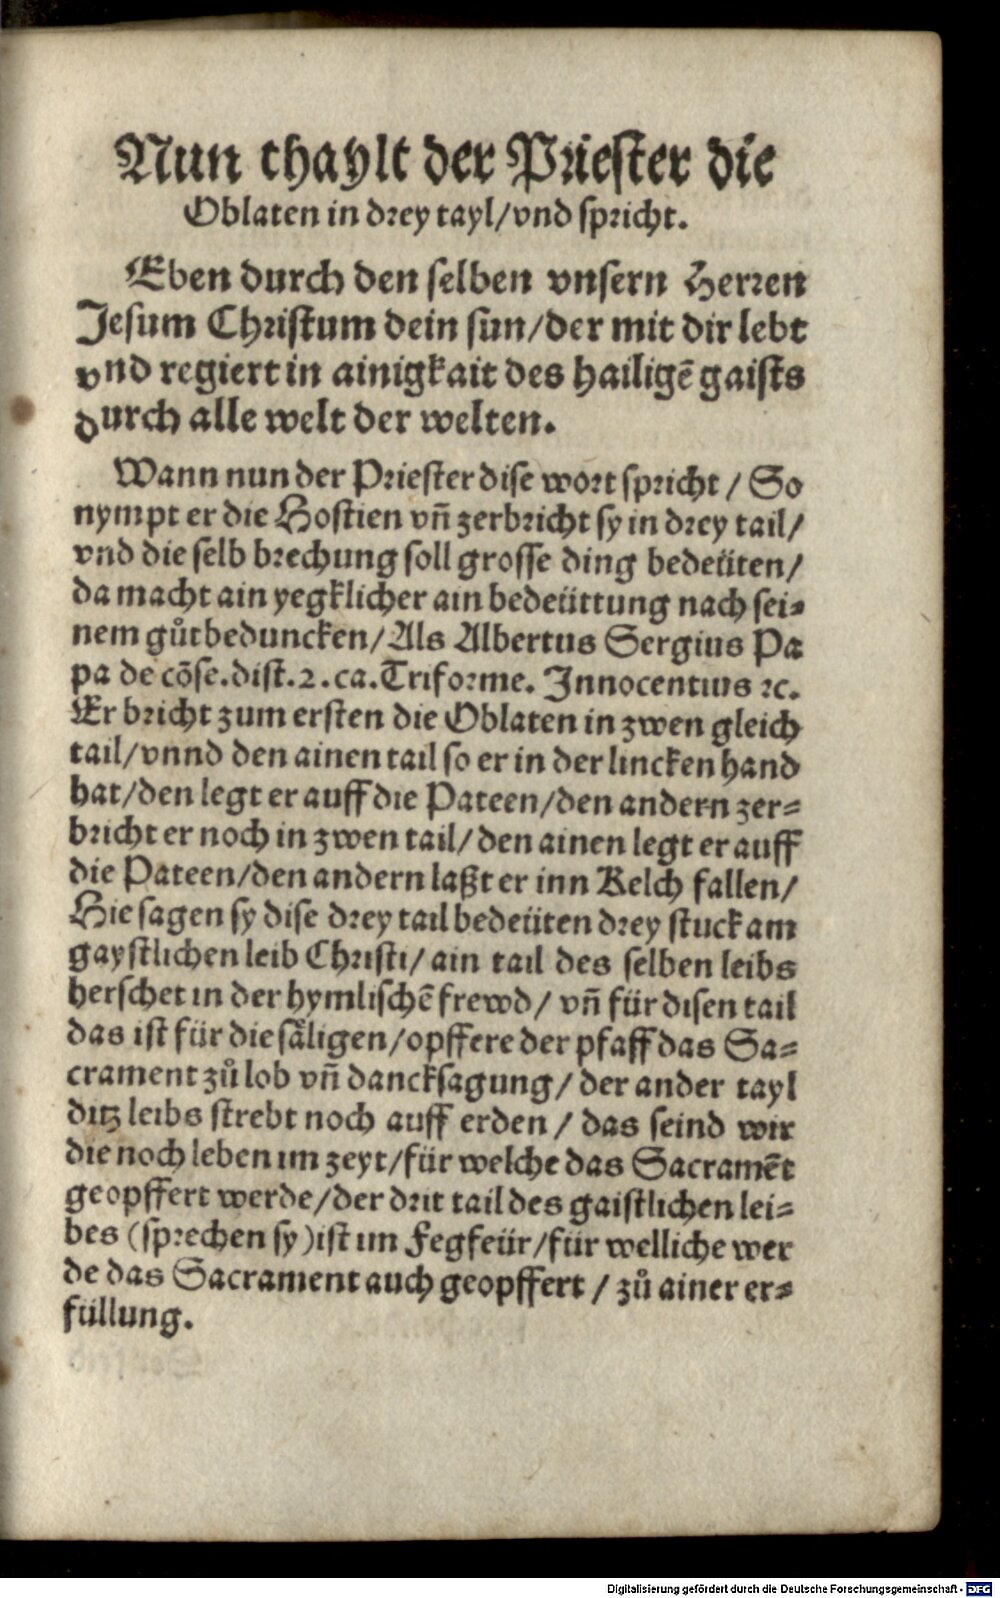 Nun thaylt der Priester die
Oblaten in drey tayl/vnd spricht.
Eben durch den selben vnsern Herren
Jesum Christum dein sun/der mit dir lebt
vnd regiert in ainigkait des hailigē gaists
durch alle welt der welten.
Wann nun der Priester dise wort spricht / So
nympt er die Hostien vn̄ zerbricht sy in drey tail/
vnd die selb brechung soll grosse ding bedeüten/
da macht ain yegklicher ain bedeüttung nach sei⸗
nem gůtbeduncken/Als Albertus Sergius Pa
pa de cōse.dist.2.ca.Triforme. Innocentius ꝛc.
Er bricht zum ersten die Oblaten in zwen gleich
tail/vnnd den ainen tail so er in der lincken hand
hat/den legt er auff die Pateen/den andern zer⸗
bricht er noch in zwen tail/den ainen legt er auff
die Pateen/den andern laßt er inn Kelch fallen/
Hie sagen sy dise drey tail bedeüten drey stuck am
gaystlichen leib Christi/ ain tail des selben leibs
herschet in der hymlischē frewd/ vn̄ für disen tail
das ist für die säligen/opffere der pfaff das Sa⸗
crament zů lob vn̄ dancksagung/ der ander tayl
ditz leibs strebt noch auff erden / das seind wir
die noch leben im zeyt/für welche das Sacramēt
geopffert werde/der drit tail des gaistlichen lei⸗
bes (sprechen sy)ist im Fegfeür/für welliche wer
de das Sacrament auch geopffert / zů ainer er⸗
füllung.
Digitalisierung gefördert durch die Deutsche Forschungsgemeinschaft - DFG